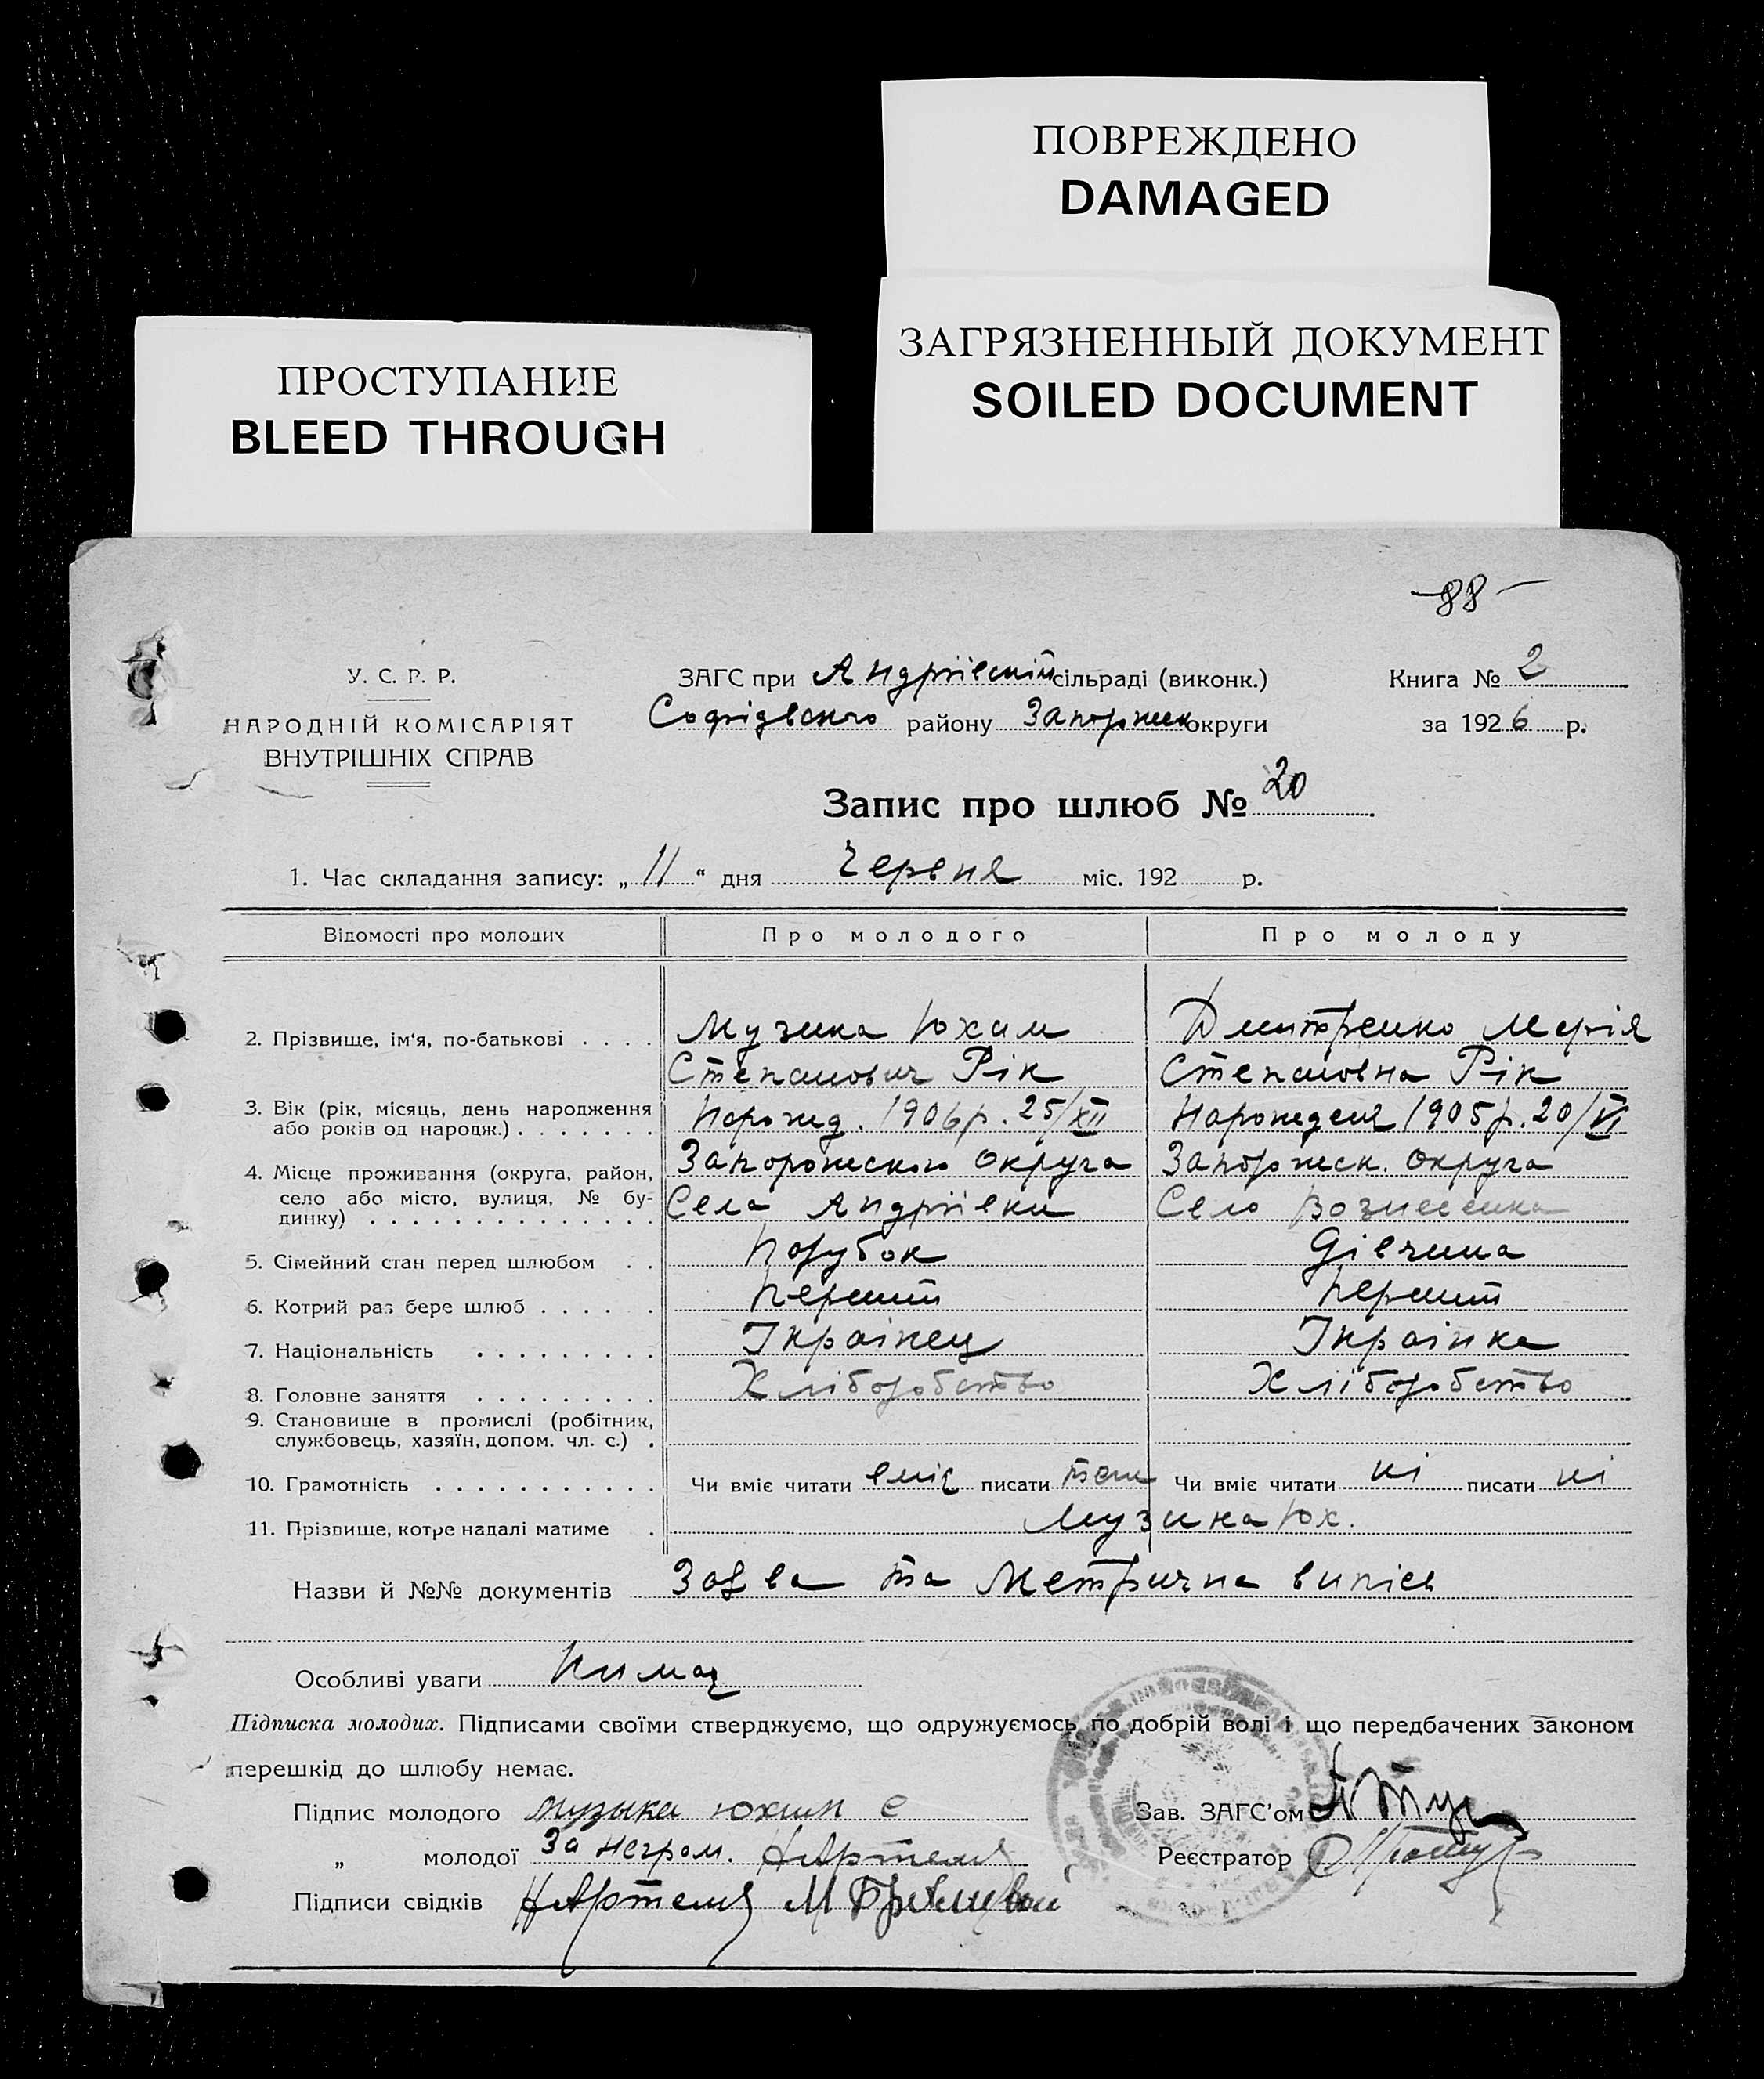 ПОВРЕЖДЕНО
DAMAGED
ЗАГРЯЗНЕННЫЙ ДОКУМЕНТ
SOILED DOCUMENT
ПРОСТУПАНИЕ
BLEED THROUGH
88
У. С. Р. Р.
НАРОДНІЙ КОМІСАРІЯТ
ВНУТРІШНІХ СПРАВ
ЗАГС при Андріївській сільраді (виконк.)
Софіївського району Запоріжськ округи
Книга № 2
за 1926 р.
Запис про шлюб № 20
1. Час складання запису: „11“ дня Червня міс. 192 р.
Відомості про молодих Про молодого Про молоду
2. Прізвище, ім‘я, по-батькові . . . . Музика Юхим Дмитренко Марія
Степанович Рік Степановна Рік
3. Вік (рік, місяць, день народження або років од народж.) . . . . . . . Нарожд. 1906р. 25/XII Нарождения 1905р. 20/VI
4. Місце проживання (округа, район, село або місто, вулиця, № будинку) . . . . . . . . . . . . . . Запорожского Округа Запорожск. Округа
Села Андріївки Село Вознесенка
5. Сімейний стан перед шлюбом . . Парубок Дівчина
6. Котрий раз бере шлюб . . . . . . Перший Перший
7. Національність . . . . . . . . . Їкраінец Їкраінка
8. Головне заняття . . . . . . . . . Хліборобство Хліборобство
9. Становище в промислі (робітник, службовець, хазяїн, допом. чл. с.) .
10. Грамотність . . . . . . . . . . . Чи вміє читати вміє писати теж Чи вміє читати ні писати ні
11. Прізвище, котре надалі матиме . Музика Юх.
Назви й №№ документів Заява та Метрична випісь
Особливі уваги Нимає
Підписка молодих. Підписами своїми стверджуємо, що одружуємось по добрій волі і що передбачених законом
перешкід до шлюбу немає.
Підпис молодого музыка юхим с
Зав. ЗАГС'ом
„ молодої За неграм. НАртема
Реєстратор
Підписи свідків НАртема М